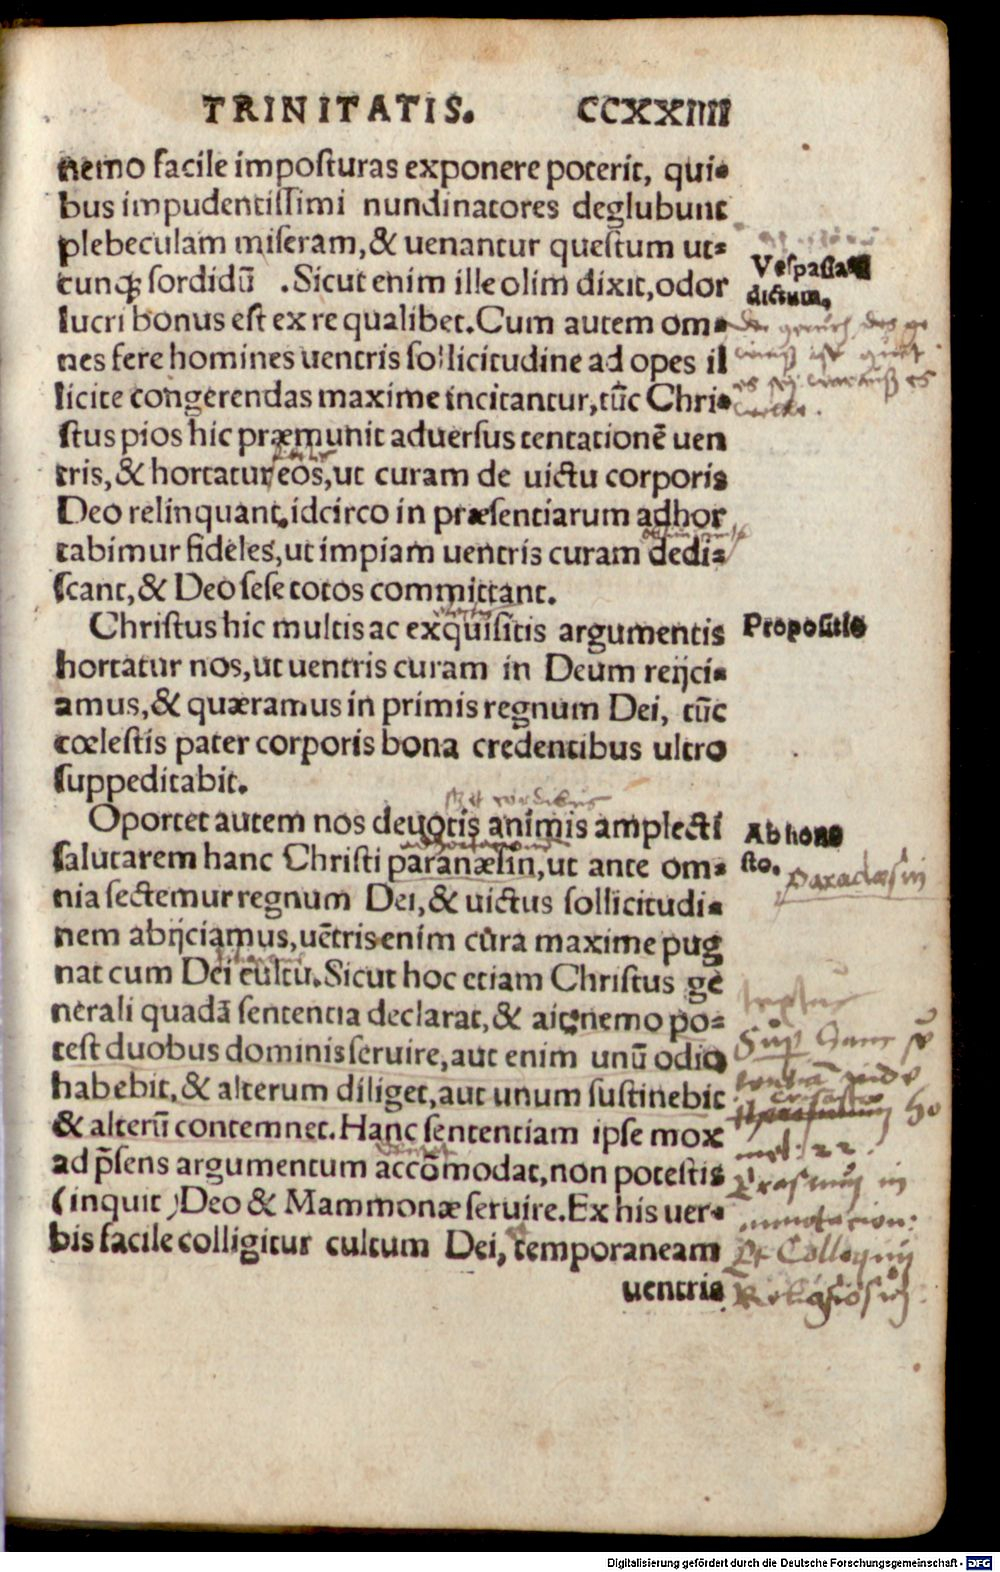 TRINITATIS. CCXXIIII
nemo facile imposturas exponere poterit, qui-
bus impudentissimi nundinatores deglubunt
plebeculam miseram, & uenantur questum ut-
cunqꝫ sordidū . Sicut enim ille olim dixit, odor
lucri bonus est ex re qualibet. Cum autem om-
nes fere homines uentris sollicitudine ad opes il
licite congerendas maxime incitantur, tūc Chri-
stus pios hic præmunit aduersus tentationē uen
tris, & hortatur eos, ut curam de uictu corporis
Deo relinquant, idcirco in præsentiarum adhor
tabimur fideles, ut impiam uentris curam dedi-
scant, & Deo sese totos committant.
Christus hic multis ac exquisitis argumentis
hortatur nos, ut uentris curam in Deum reijci-
amus, & quæramus in primis regnum Dei, tūc
cœlestis pater corporis bona credentibus ultro
suppeditabit.
Oportet autem nos deuotis animis amplecti
salutarem hanc Christi paranæsin, ut ante om-
nia sectemur regnum Dei, & uictus sollicitudi-
nem abijciamus, uētris enim cura maxime pug
nat cum Dei cultu. Sicut hoc etiam Christus ge
nerali quadā sententia declarat, & ait: nemo po-
test duobus dominis seruire, aut enim unū odio
habebit, & alterum diliget, aut unum sustinebit
& alterū contemnet. Hanc sententiam ipse mox
ad p̄sens argumentum accōmodat, non potestis
(inquit) Deo & Mammonæ seruire. Ex his uer-
bis facile colligitur cultum Dei, temporaneam
uentris
Vespasia
dictum.
Propositio
Ab hone
sto.
Erasmus in
annotation:
Et Colloquij
Digitalisierung gefördert durch die Deutsche Forschungsgemeinschaft - DFG